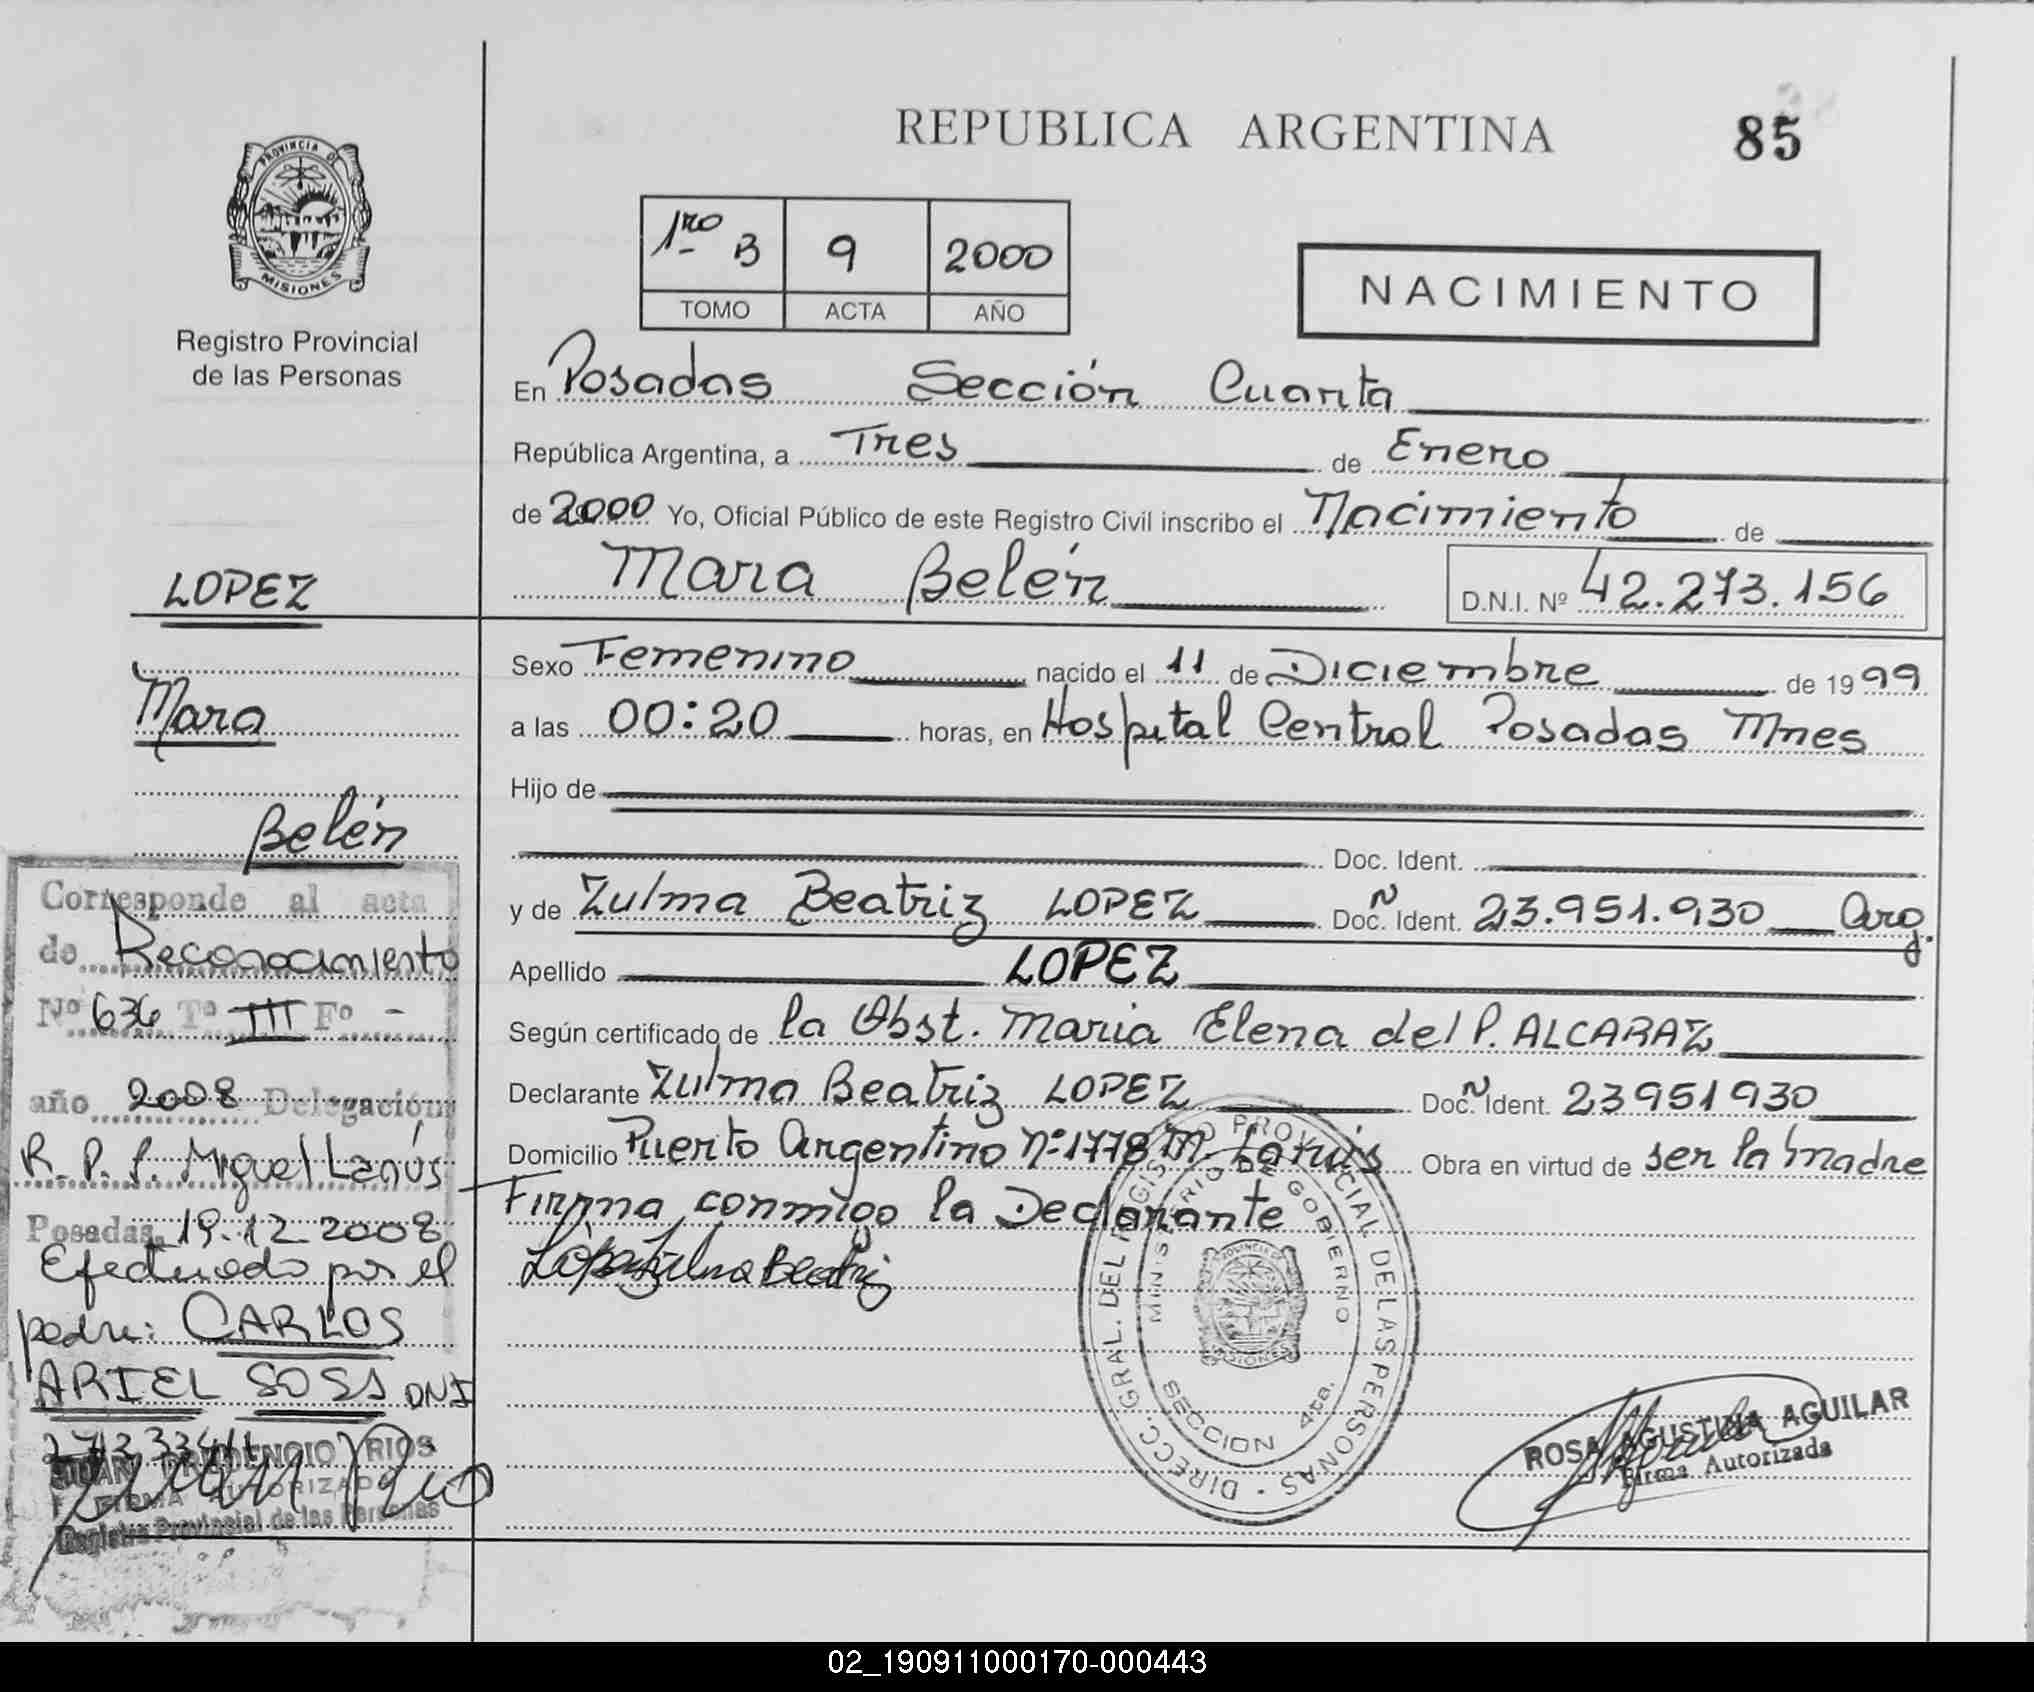 REPUBLICA ARGENTINA
85
PROVINCIA DE
MISIONES
Registro Provincial
de las Personas
1ro B 9 2000
TOMO ACTA AÑO
NACIMIENTO
En Posadas Sección Cuarta
República Argentina, a Tres de Enero
de 2000 Yo, Oficial Público de este Registro Civil inscribo el Nacimiento de
Mara Belén D.N.I. Nº 42.273.156
Sexo Femenino nacido el 11 de Diciembre de 1999
a las 00:20 horas, en Hospital Central Posadas Mnes
Hijo de
Doc. Ident.
y de Zulma Beatriz LOPEZ Doc. Ident. 23.951.930 Arg.
Apellido LOPEZ
Según certificado de la Obst. Maria Elena del P. ALCARAZ
Declarante Zulma Beatriz LOPEZ Doc. Ident. 23951930
Domicilio Puerto Argentino Nº 1778 M. Obra en virtud de ser la madre
Firma conmigo la Declarante
López Zulma Beatriz
LOPEZ
Mara
Belén
Corresponde al acta
de Reconocimiento
Nº 636 Tº III Fº -
año 2008 Delegación
R. P. S. Miguel Lanús
Posadas, 19.12.2008
Efectuado por el
padre: CARLOS
ARIEL SOSA DNI
JUAN PRUDENCIO RIOS
FIRMA AUTORIZADA
Registro Provincial de las Personas
DIRECC. GRAL. DEL REGISTRO PROVINCIAL DE LAS PERSONAS
MINISTERIO DE GOBIERNO
PROVINCIA DE
MISIONES
SECCION 4ta.
ROSA AGUSTINA AGUILAR
Firma Autorizada
02_190911000170-000443